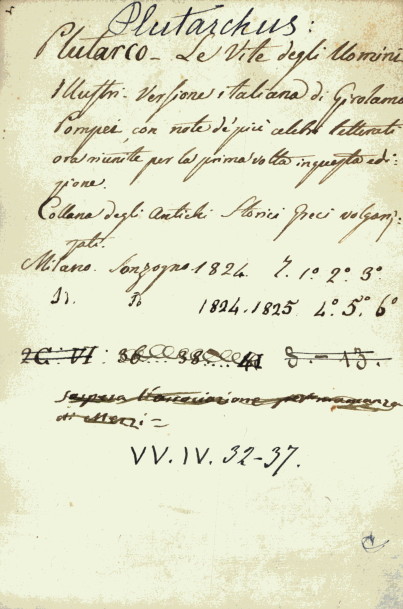 Plutarchus:
Plutarco - Le Vite degli Uomini
Illustri. Versione italiana di Girolamo
Pompei con note de' più celebri letterati
ora riunite per la prima volta in questa edi-
zione.
Collana degli Antichi Storici Greci volgariz-
zati.
Milano. Sonzogno. 1824. T. 1° 2° 3°
Id. Id 1824.1825 4° 5° 6°
2C. VI: 36 38 41 8. - 13.
sospesa l'associazione per mancanza
di Mezzi =
VV. IV. 32-37.